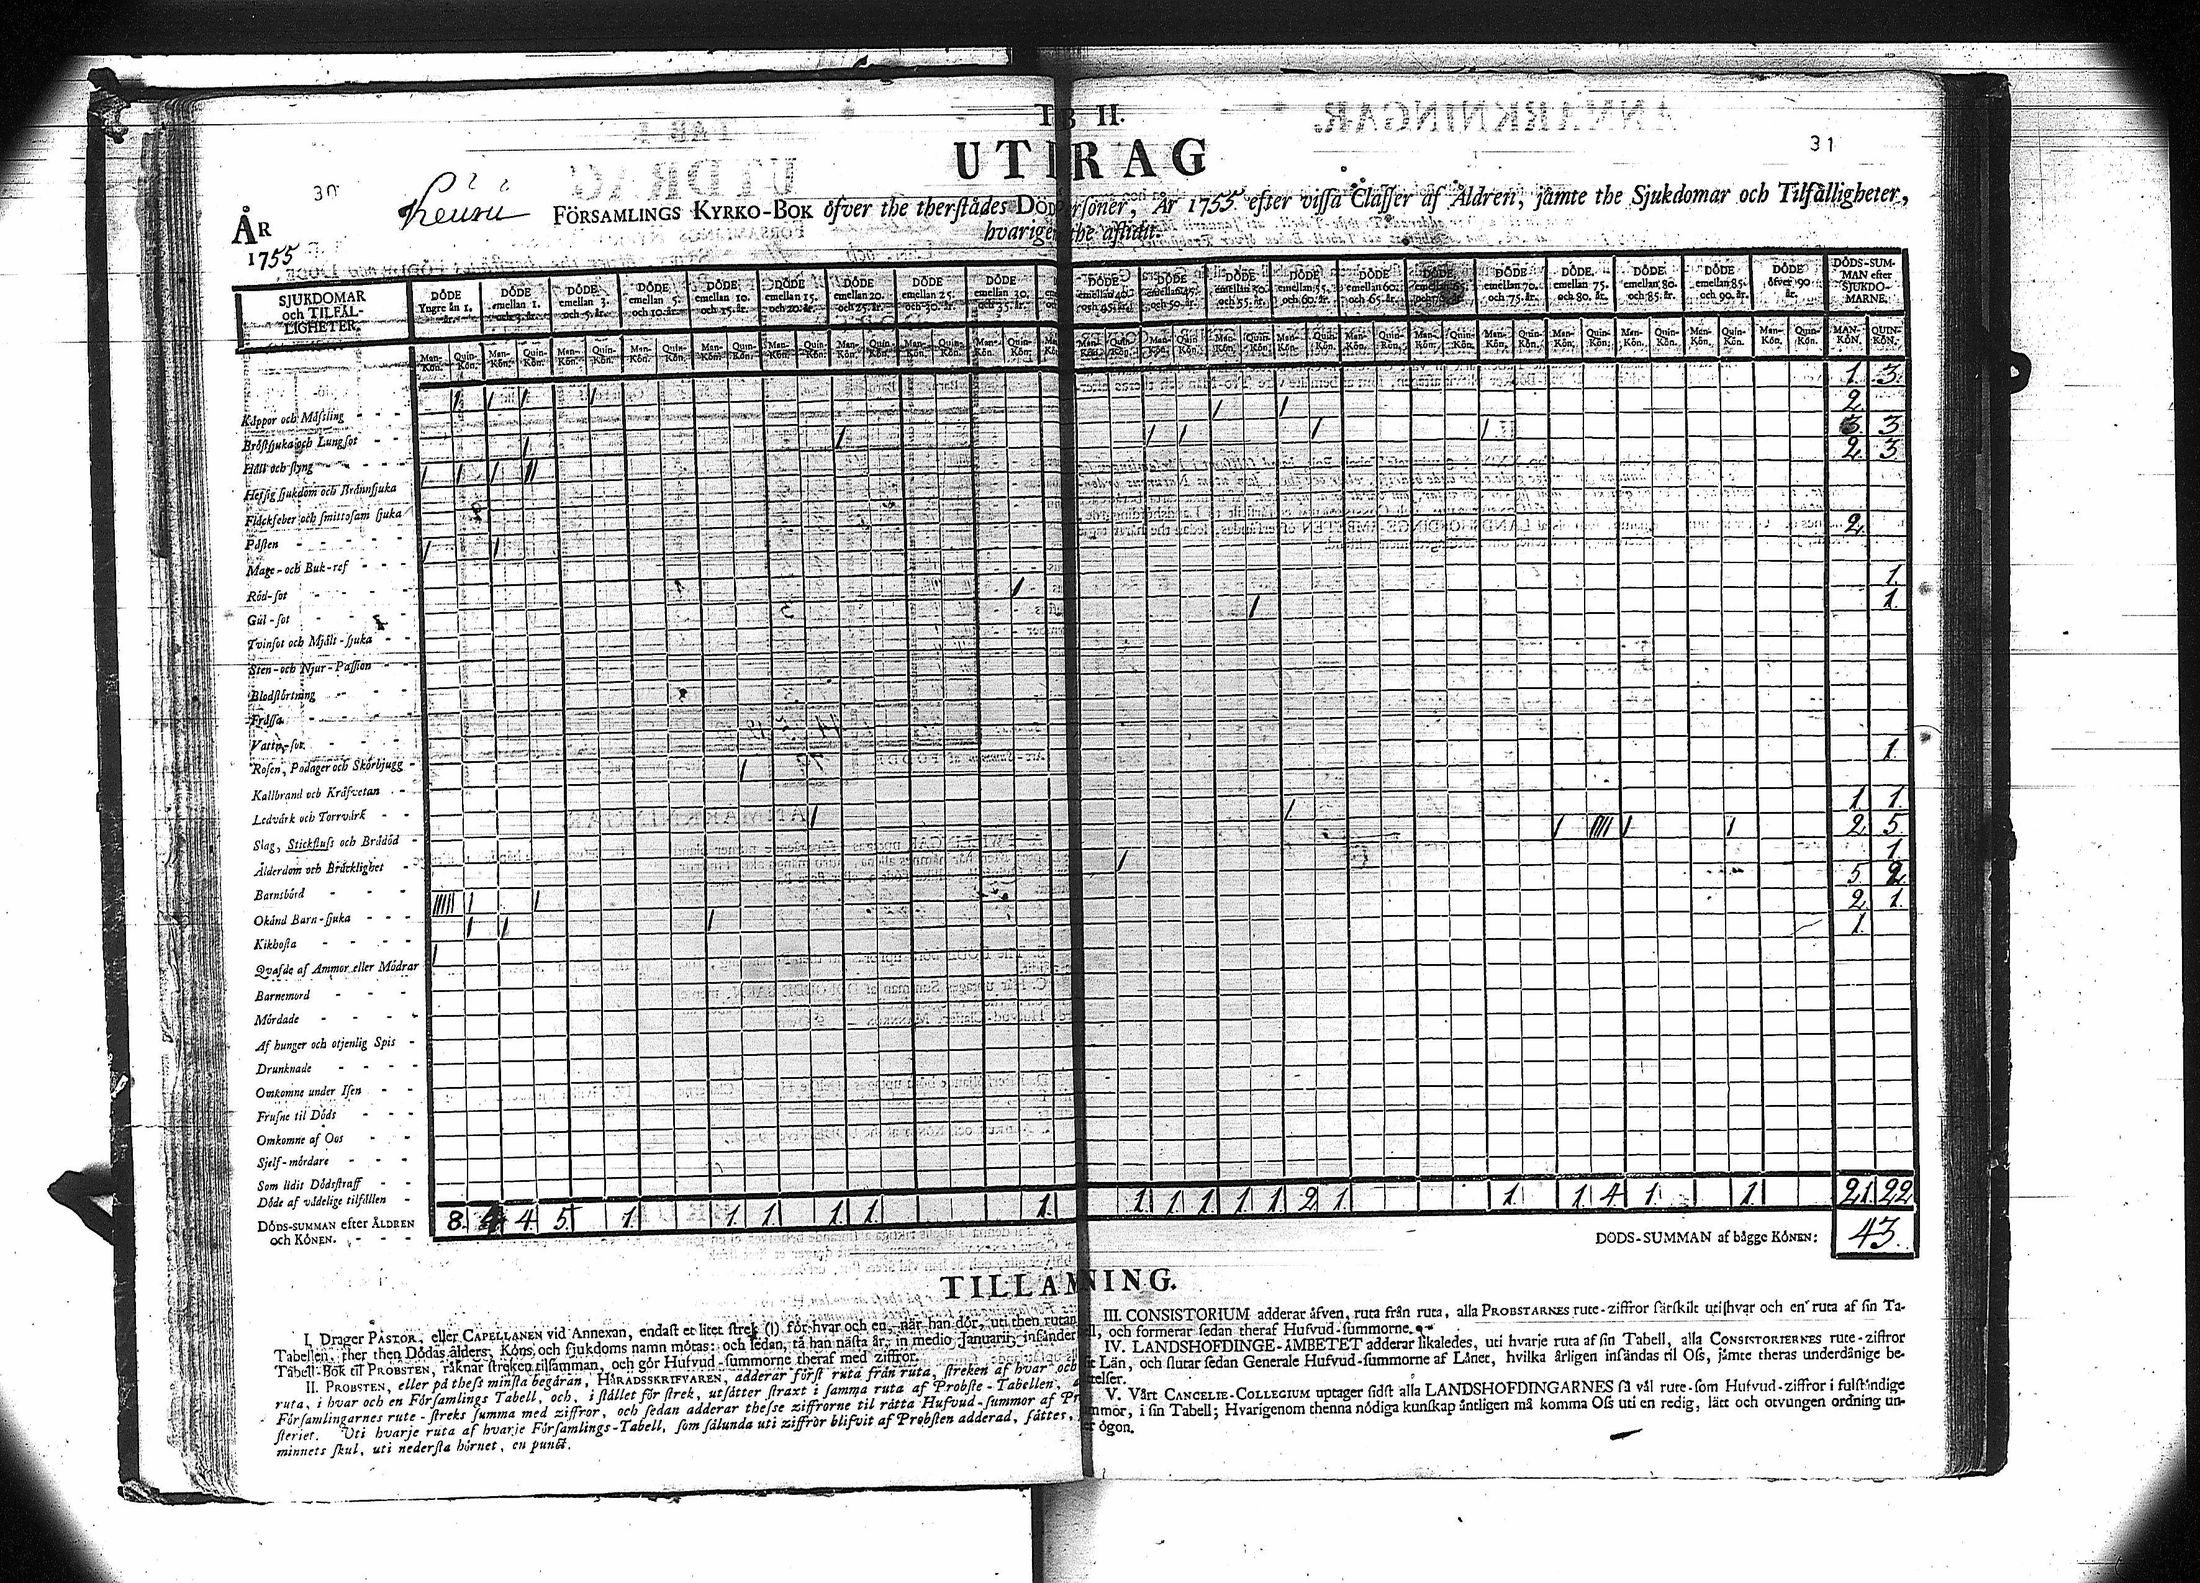 T B II.
UT RAG
30
31
Keuru FÖRSAMLINGS KYRKO-BOK öfver the therstädes DÖD rsoner, År 1755 efter vissa Classer af Åldren, jämte the Sjukdomar och Tilfälligheter,
hvarige the aflidit.
ÅR
1755
SJUKDOMAR och TILFÄL-LIGHETER.
DÖDE Yngre än 1. år.
DÖDE emellan 1. och 3. år.
DÖDE emellan 3. och 5. år.
DÖDE emellan 5. och 10. år.
DÖDE emellan 10. och 15. år.
DÖDE emellan 15. och 20. år.
DÖDE emellan 20. och 25. år.
DÖDE emellan 25. och 30. år.
DÖDE emellan 30. och 35. år.
DÖDE emellan 40. och 45. år.
DÖDE emellan 45. och 50. år.
DÖDE emellan 50. och 55. år.
DÖDE emellan 55. och 60. år.
DÖDE emellan 60. och 65. år.
DÖDE emellan 65.
DÖDE emellan 70. och 75. år.
DÖDE emellan 75. och 80. år.
DÖDE emellan 80. och 85. år.
DÖDE emellan 85. och 90. år.
DÖDE öfver 90 år.
DÖDS-SUM-MAN efter SJUKDO-MARNE.
Man-Kön. Quin-Kön.
MAN-KÖN. QUIN-KÖN.
Kåppor och Mässling / / / / 1. 3.
Bröstsjuka och Lungsot / / 2.
Håll och styng / / / / / / 3. 3
Hetsig sjukdom och Brännsjuka / / / // 2. 3
Fläckfeber och smittosam sjuka
Pästen
Mage- och Buk-ref / / 2.
Röd-sot
Gul-sot / 1.
Tvinsot och Mjält-sjuka / 1.
Sten- och Njur-Passion
Blodstörtning
Frässa
Vattu-sot
Rosen, Podager och Skörbjugg / 1.
Kallbrand och Kräfvetan
Ledvärk och Torrvärk / / 1. 1.
Slag, Stickfluss och Brådöd / //// / / 2. 5
Ålderdom och Bräcklighet / 1.
Barnsbörd ///// / / 5. 2.
Okänd Barn-sjuka / / / 2. 1.
Kikhosta / 1.
Qvafde af Ammor eller Mödrar
Barnemord
Mördade
Af hunger och otjenlig Spis
Drunknade
Omkomne under Isen
Frusne til Döds
Omkomne af Oos
Sjelf-mördare
Som lidit Dödsstraff
Döde af vådelige tilfällen
DÖDS-SUMMAN efter ÅLDREN
och KÖNEN.
8. 4 4 5. 1. 1. 1. 1. 1. 1. 1. 1. 1. 1. 1. 2. 1. 1. 1. 4. 1. 1. 21. 22
DÖDS-SUMMAN af bägge KÖNEN: 43.
TILLÄM NING.
I. Drager PASTOR, eller CAPELLANEN vid Annexan, endast et litet strek (I) för hvar och en, när han dör, uti then rutan
Tabellen, ther then Dödas ålders, Köns och sjukdoms namn mötas: och sedan, tå han nästa år, in medio Januarii, insänder
Tabell-Bok til PROBSTEN, räknar streken tilsamman, och gör Hufvud-summorne theraf med ziffror.
II. PROBSTEN, eller på thess minsta begäran, HÄRADSSKRIFVAREN, adderar först ruta från ruta, streken af hvar och
ruta, i hvar och en Församlings Tabell, och, i stället för strek, utsätter straxt i samma ruta af Probste-Tabellen,
Församlingarnes rute-streks summa med ziffror, och sedan adderar thesse ziffrorne til rätta Hufvud-summor af Pr
steriet. Uti hvarje ruta af hvarje Församlings-Tabell, som sålunda uti ziffror blifvit af Probsten adderad, sättes,
minnets skul, uti nedersta hörnet, en punct.
III. CONSISTORIUM adderar äfven, ruta från ruta, alla PROBSTARNES rute-ziffror särskilt uti hvar och en ruta af sin Ta-
ll, och formerar sedan theraf Hufvud-summorne.
IV. LANDSHOFDINGE-ÄMBETET adderar likaledes, uti hvarje ruta af sin Tabell, alla CONSISTORIERNES rute-ziffror
Län, och slutar sedan Generale Hufvud-summorne af Länet, hvilka årligen insändas til Oss, jämte theras underdånige be-
telser.
V. Vårt CANCELIE-COLLEGIUM uptager sidst alla LANDSHOFDINGARNES så väl rute- som Hufvud-ziffror i fulständige
mmor, i sin Tabell; Hvarigenom thenna nödiga kunskap äntligen må komma Oss uti en redig, lätt och otvungen ordning un-
ögon.